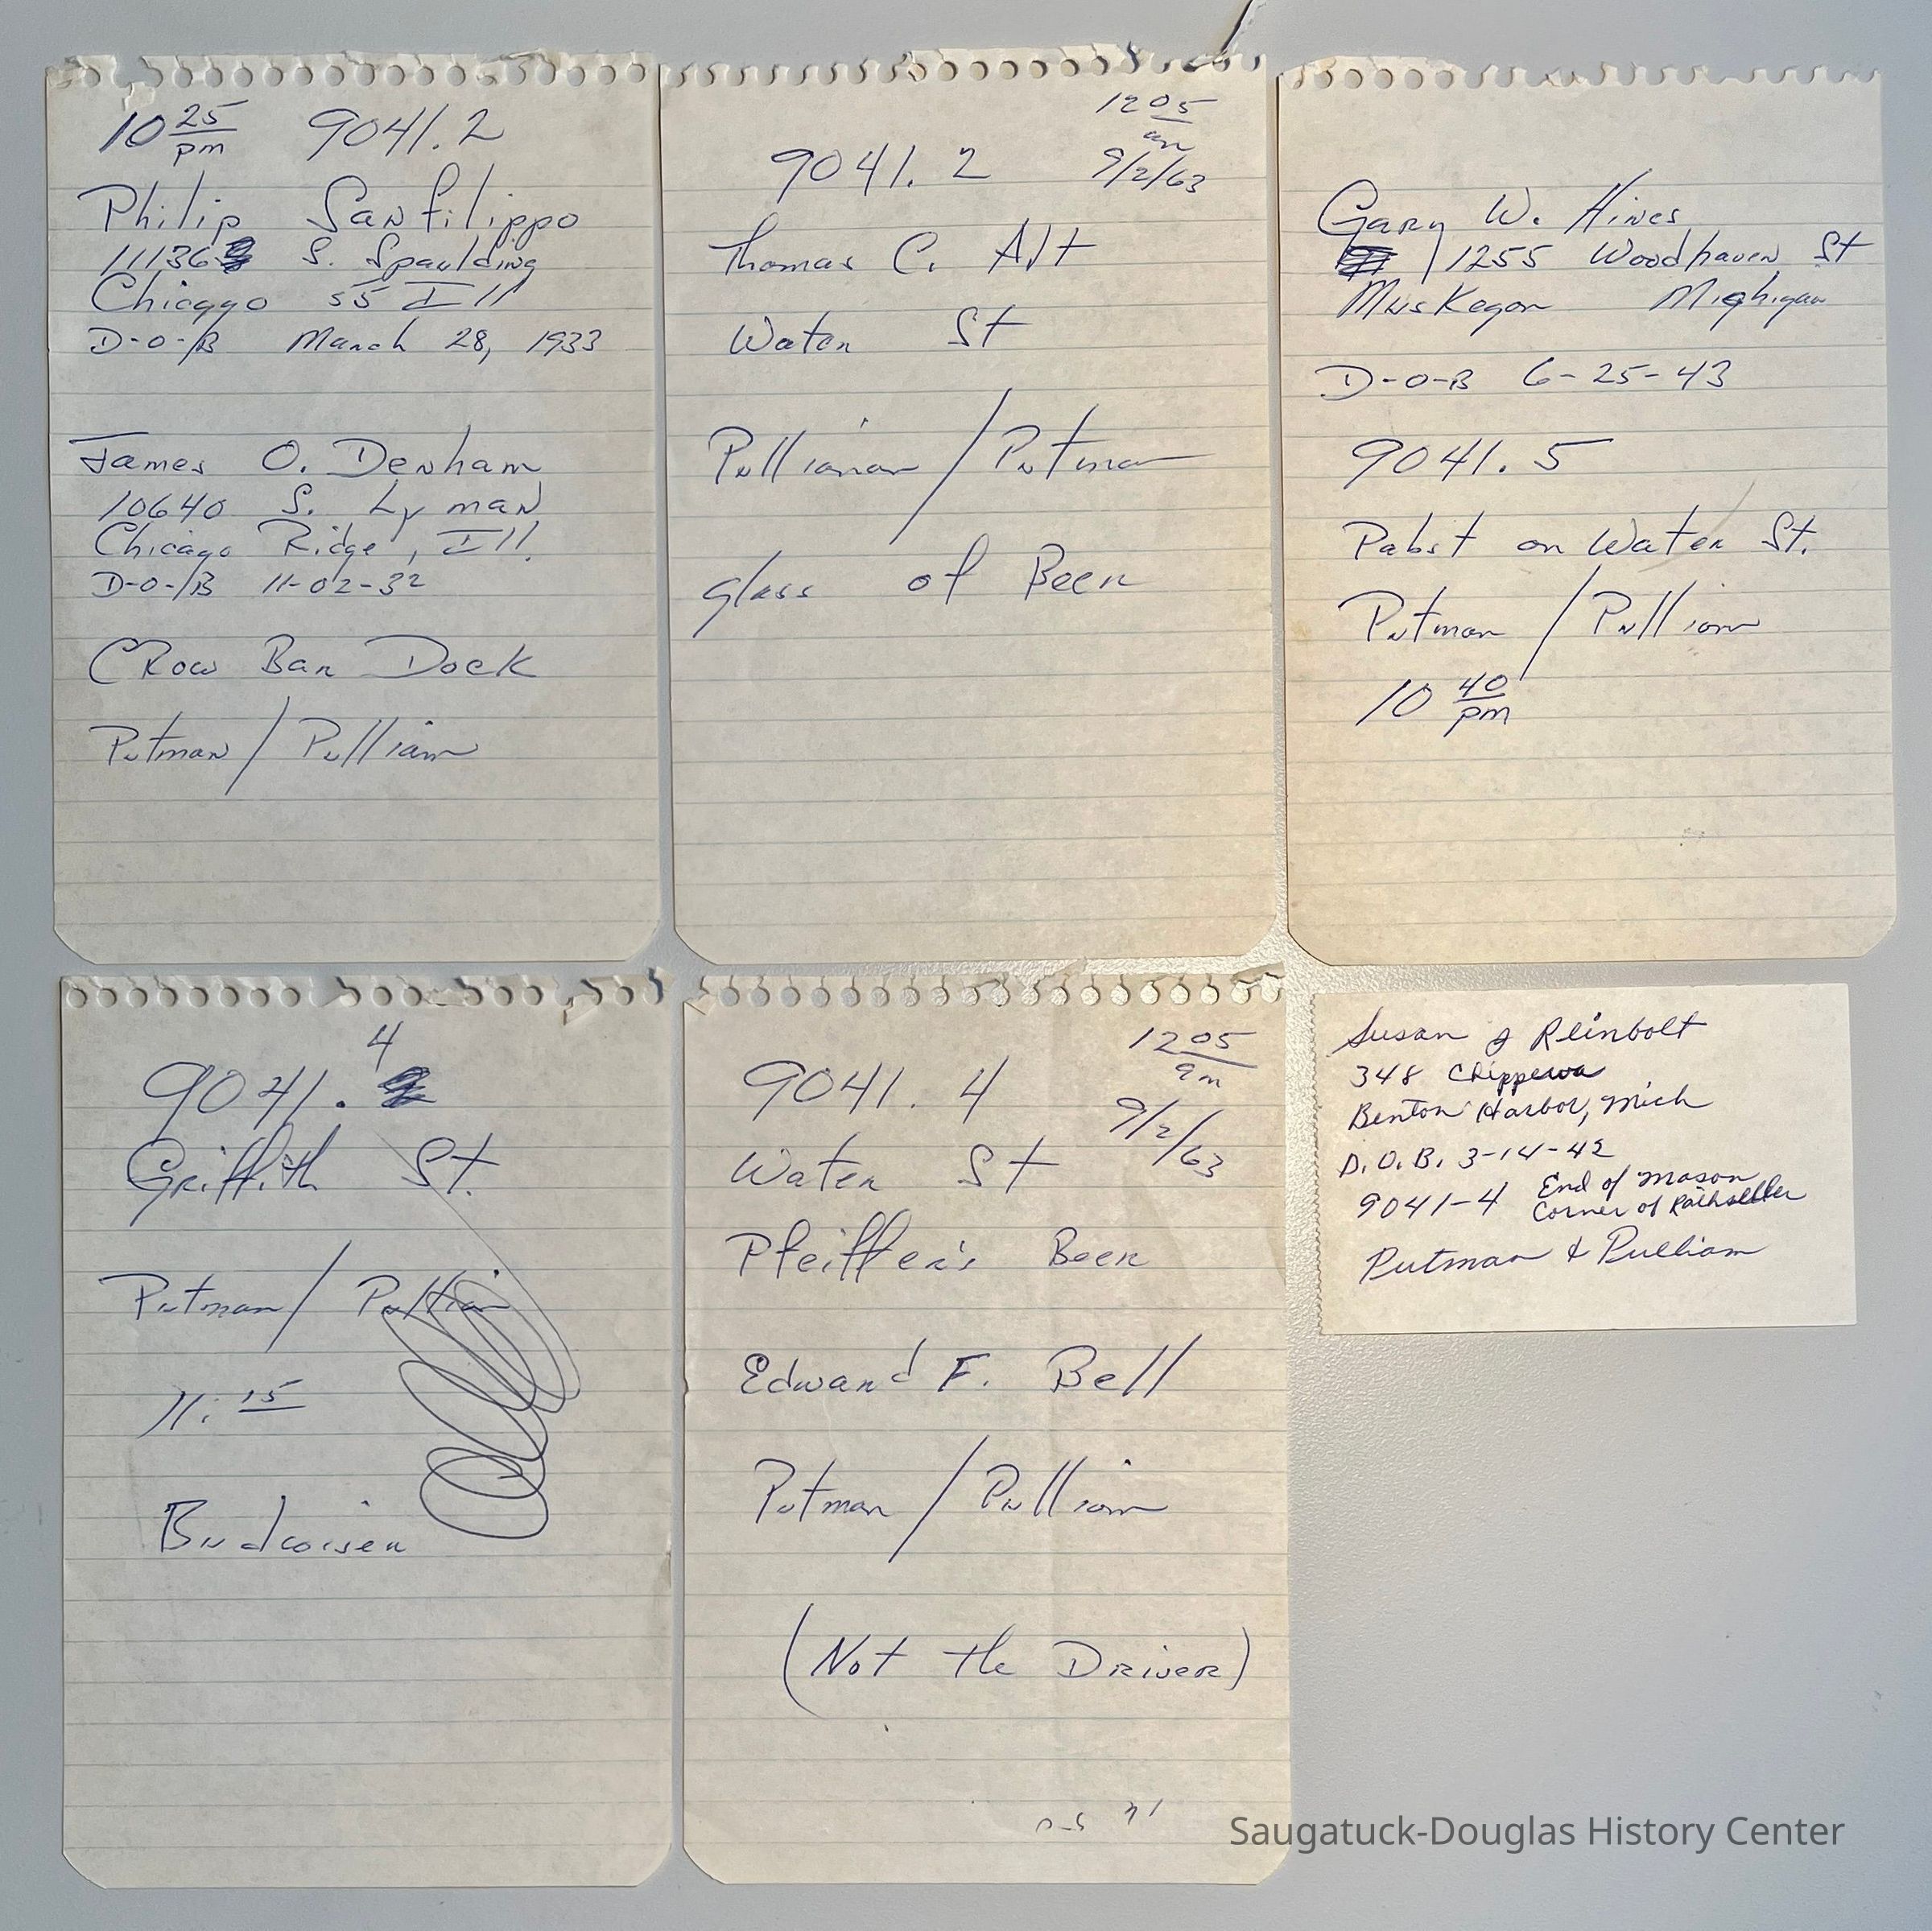 10 25 pm 9041.2
Philip Sanfilippo
11136 S. Spaulding
Chicago 55 Ill
D-O-B March 28, 1933
James O. Denham
10640 S. Lyman
Chicago Ridge, Ill.
D-O-B 11-02-32
CRow Bar Dock
Putman / Pulliam
12 05 am
9041.2 9/2/63
Thomas C. Alt
Water St
Pulliam / Putman
glass of Beer
Gary W. Hines
1255 Woodhaven St
Muskegon Michigan
D-O-B 6-25-43
9041.5
Pabst on Water St.
Putman / Pulliam
10 40 pm
4
9041.
Griffith St.
Putman / Pulliam
11:15
Budwiser
12 05 am
9041.4 9/2/63
Water St
Pfeiffer's Beer
Edward F. Bell
Putman / Pulliam
(Not the Driver)
Susan J Reinbolt
348 Chippewa
Benton Harbor, Mich
D.O.B. 3-14-42
9041-4 End of Mason
Corner of
Putman & Pulliam
Saugatuck-Douglas History Center